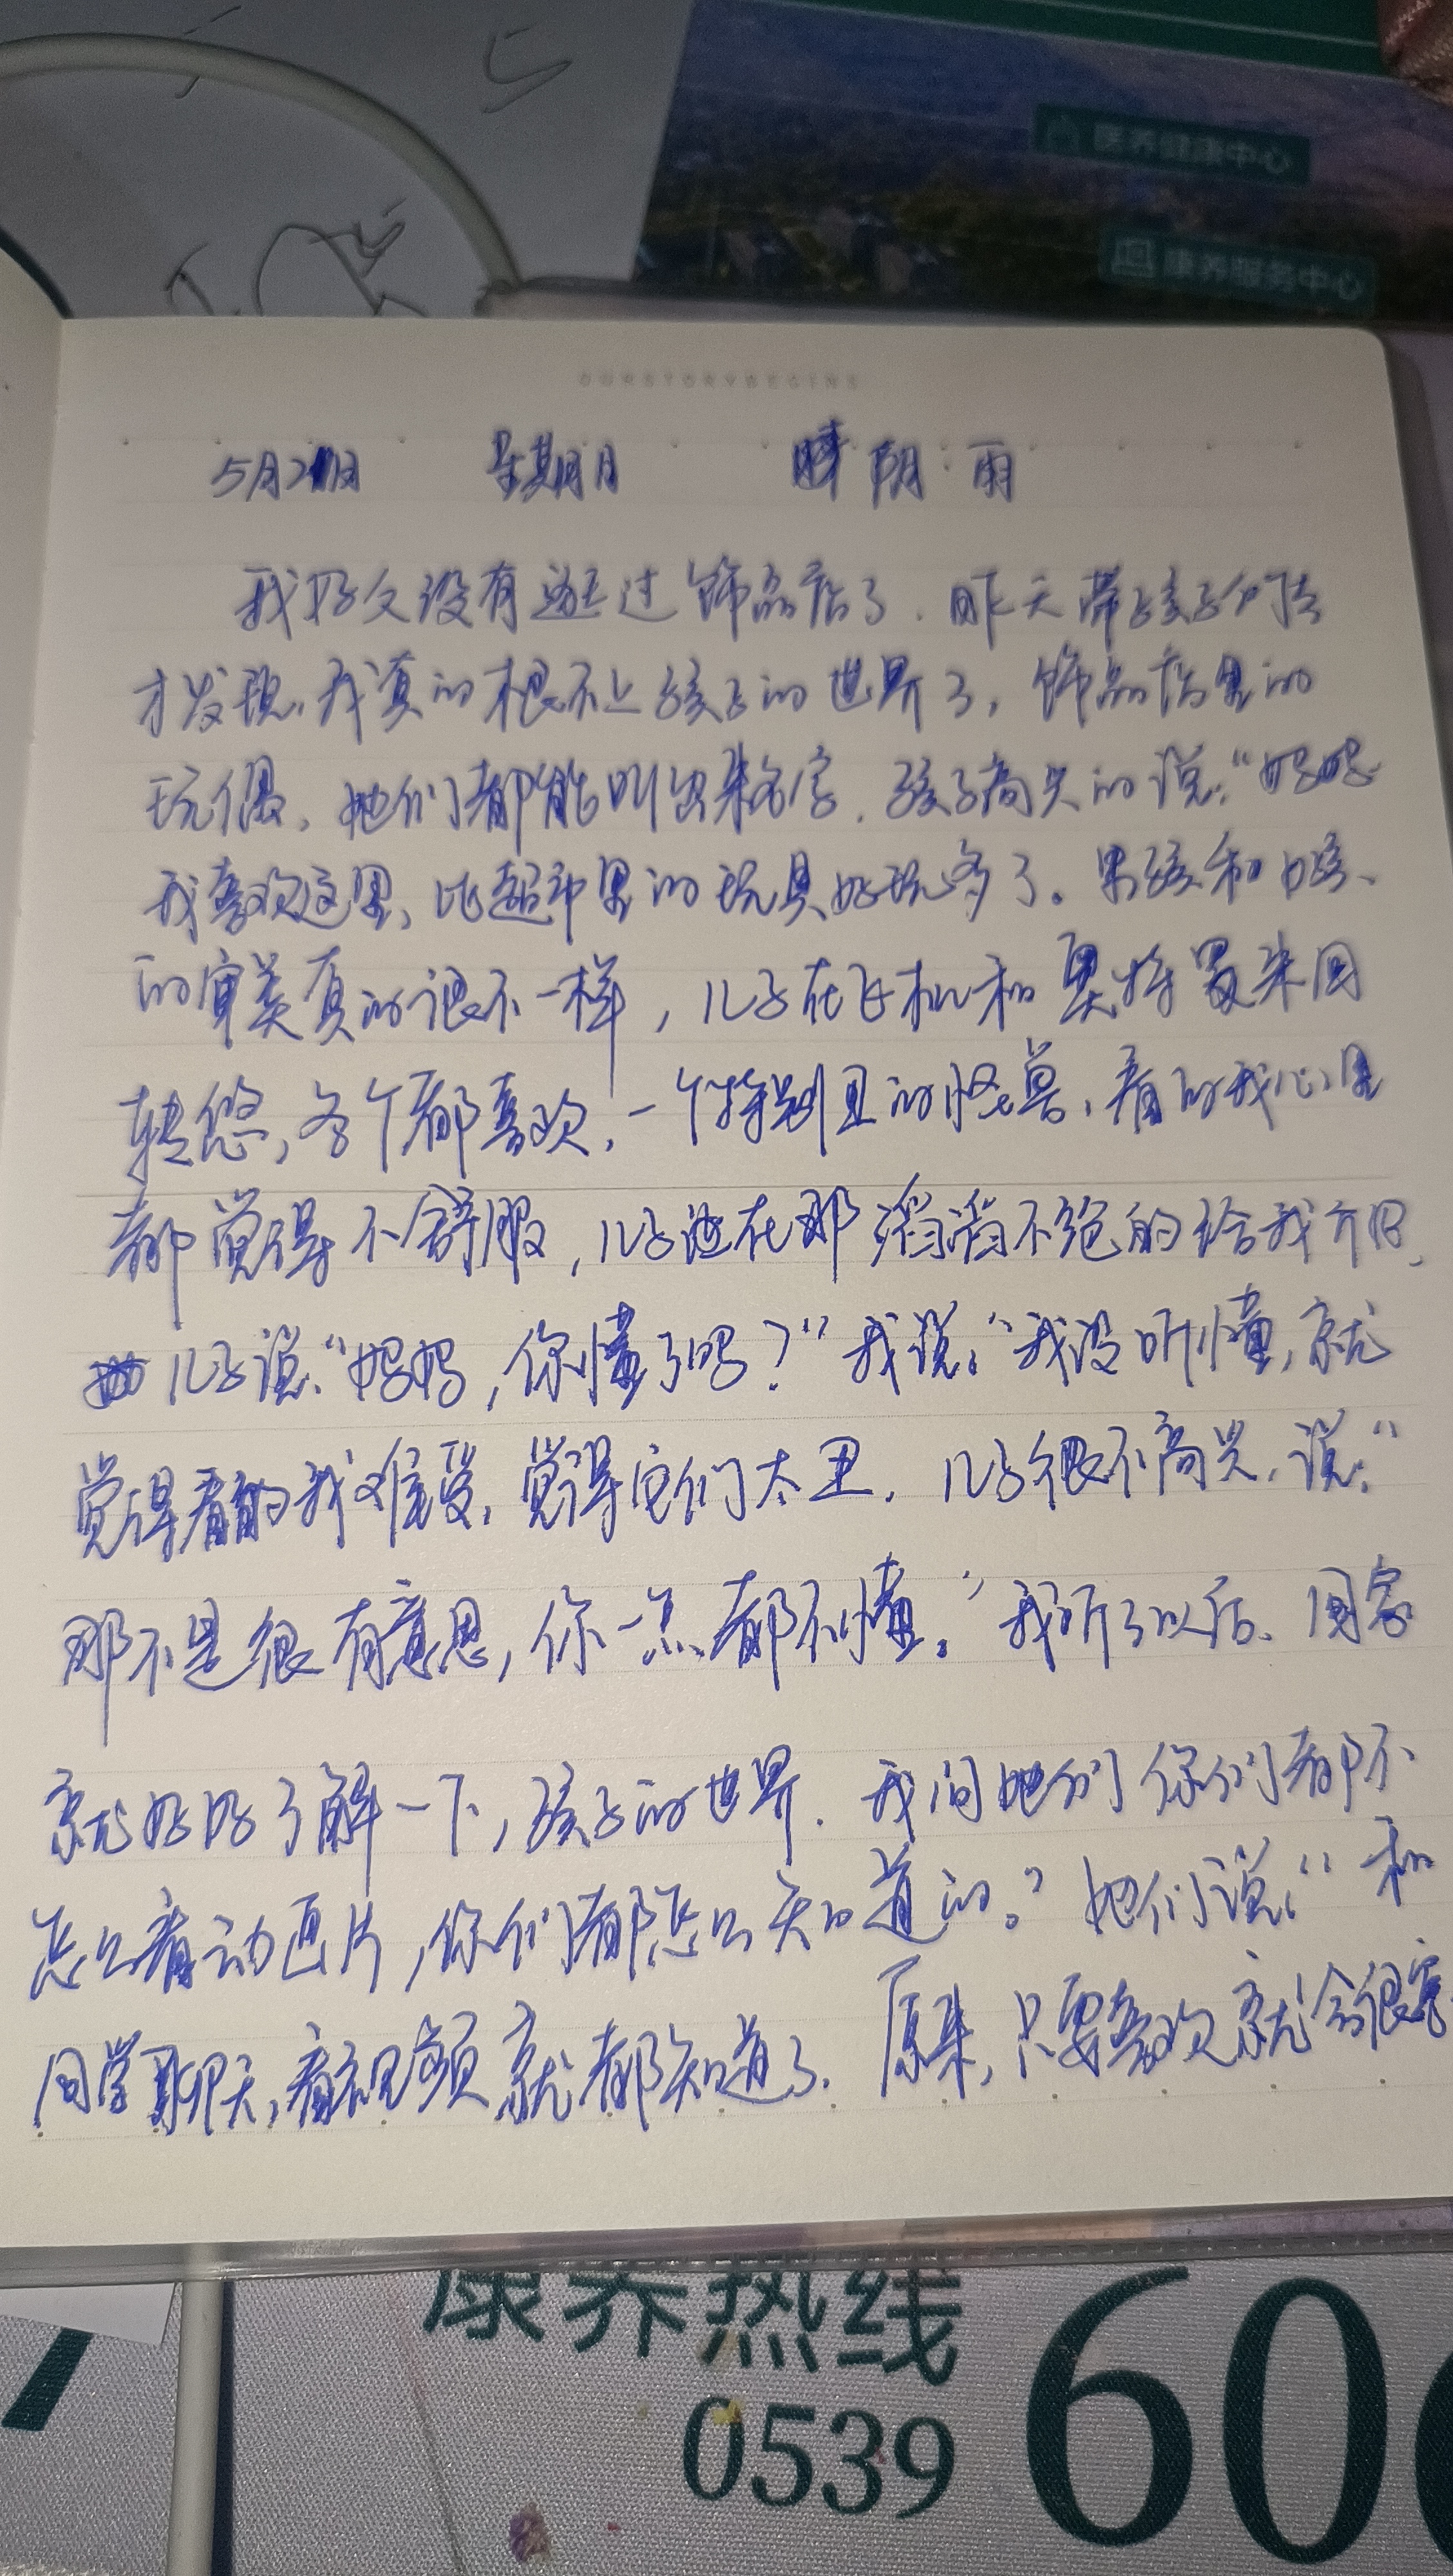 医养健康中心
康养服务中心
OURSTORYBEGINS
5月2日 星期日 阴:雨
我好久没有逛过饰品店了.昨天带孩子们去
才发现,我真的根不上孩子的世界了,饰品店里的
玩偶、她们都能叫出来名字.孩子高兴的说:“妈妈
我喜欢这里,比超市里的玩具好玩多了。男孩和女孩、
的审美真的很不一样,儿子在飞机和奥特曼来回
转悠,各个都喜欢,一个特别丑的怪兽,看的我心里
都觉得不舒服,儿子还在那滔滔不绝的给我介绍,
儿子说:“妈妈,你懂了吗?”我说:“我没听懂,就
觉得看的我难受,觉得它们太丑.儿子很不高兴,说:“
那不是很有意思,你一点都不懂。”我听了以后、回家
就好好了解一下,孩子的世界.我问她们你们都不
怎么看动画片,你们都怎么知道的?她们说:“和
同学聊天,看视频就都知道了.原来,只要喜欢就会很容
康养热线
0539 60